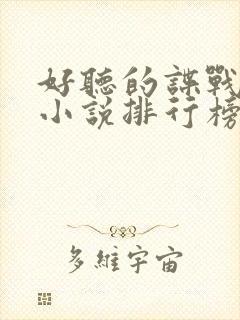 好聽的諜戰
小説排行榜
多維宇宙